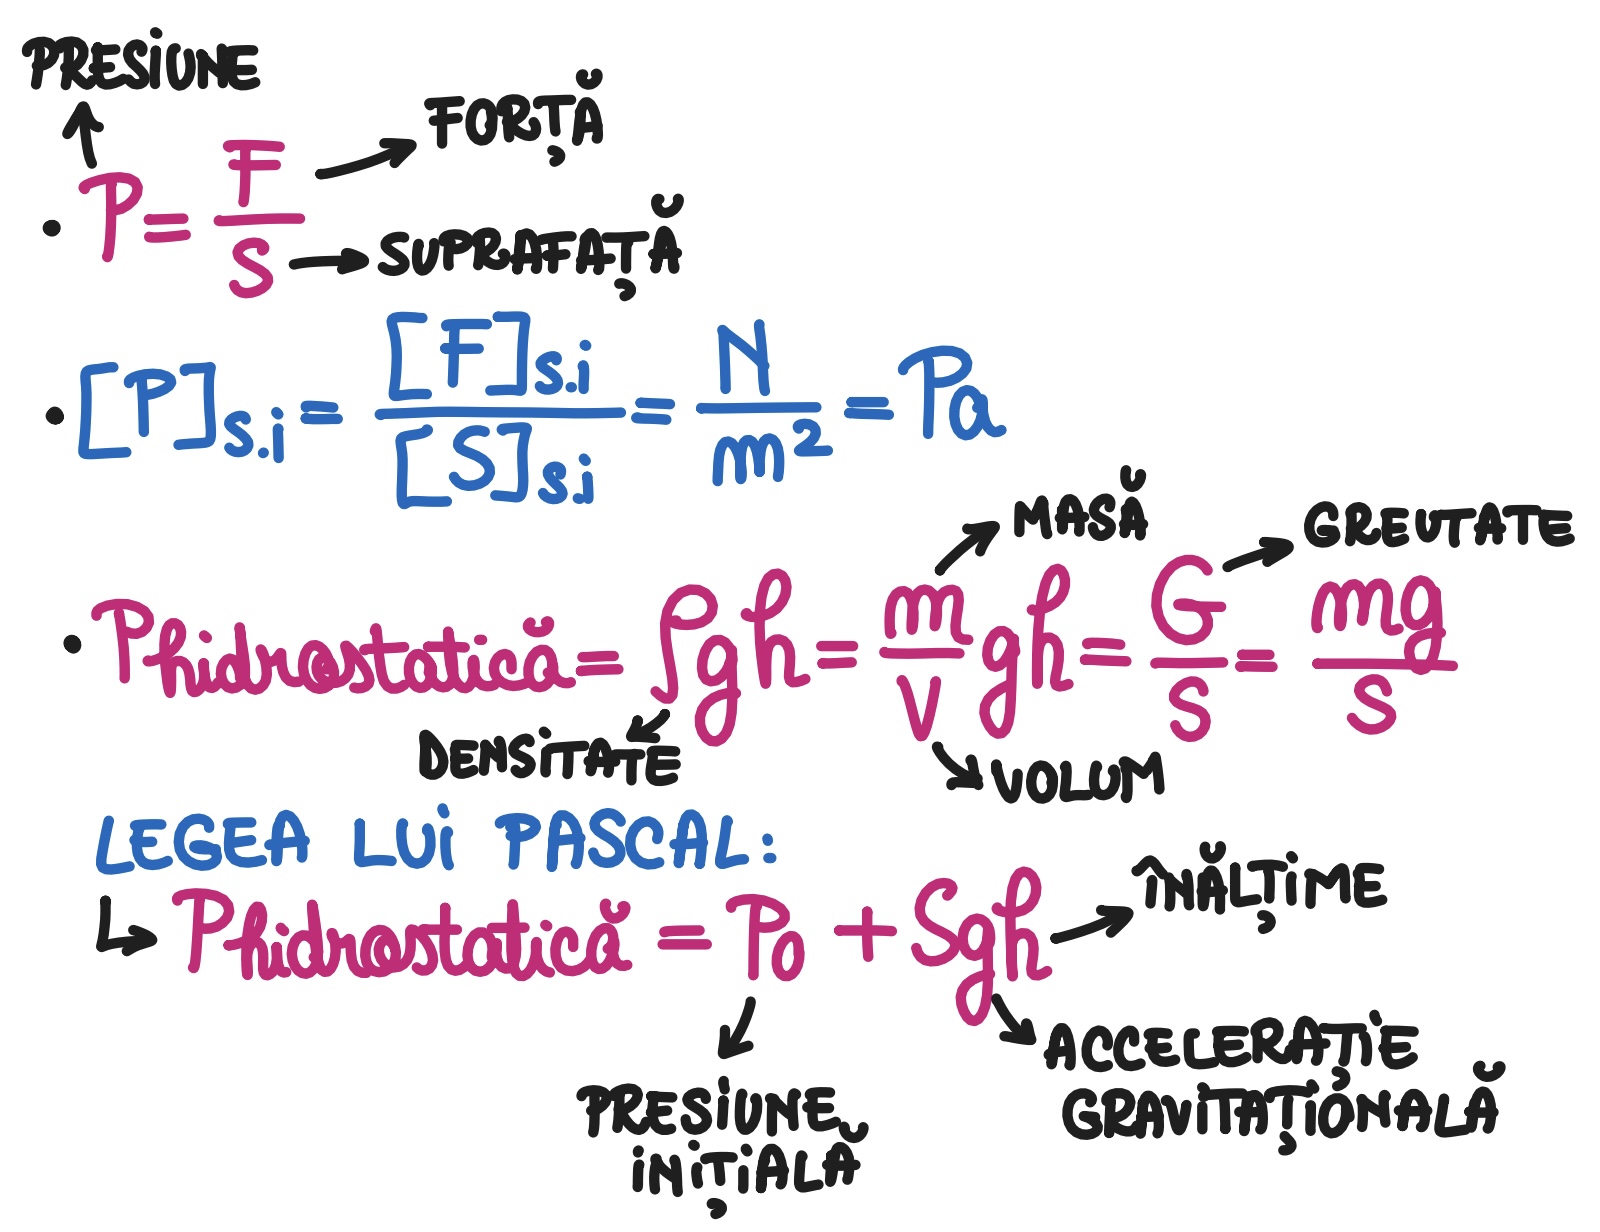 PRESIUNE
FORȚĂ
• P = F/S
SUPRAFAȚĂ
• [P]s.i = [F]s.i/[S]s.i = N/m² = Pa
MASĂ
GREUTATE
• Phidrostatică = ρgh = m/V gh = G/S = mg/S
DENSITATE
VOLUM
LEGEA LUI PASCAL:
Phidrostatică = P0 + Sgh
ÎNĂLȚIME
ACCELERAȚIE
GRAVITAȚIONALĂ
PRESIUNE
INIȚIALĂ